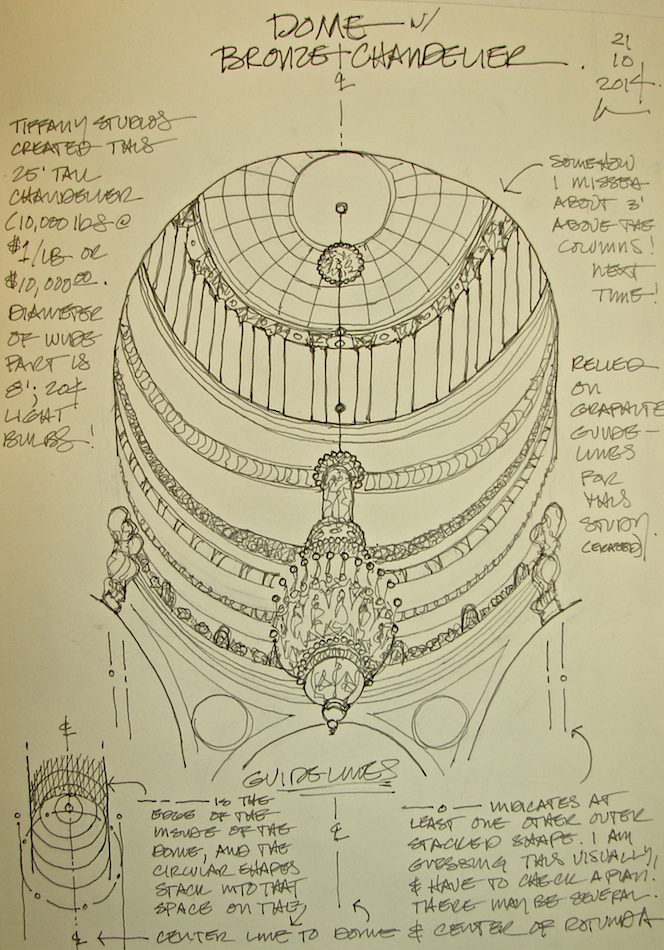 DOME W/
BRONZE CHANDELIER.
21
10
2014
℄
TIFFANY STUDIOS
CREATED THIS
25' TALL
CHANDELIER
(10,000 lbs @
$1/LB OR
$10,000.00.
DIAMETER
OF WIDE
PART IS
8'; 204
LIGHT
BULBS!
SOMEHOW
I MISSED
ABOUT 3'
ABOVE THE
COLUMNS!
NEXT
TIME!
RELIED
ON
GRAPHITE
GUIDE-
LINES
FOR
THIS
STUDY
(ERASED)
GUIDELINES
℄
IS THE
EDGE OF THE
INSIDE OF THE
DOME, AND THE
CIRCULAR SHAPES
STACK INTO THAT
SPACE ON THE
℄
—o— INDICATES AT
LEAST ONE OTHER OUTER
STACKED SHAPE. I AM
GUESSING THIS VISUALLY,
& HAVE TO CHECK A PLAN.
THERE MAY BE SEVERAL.
℄ CENTER LINE TO DOME & CENTER OF ROTUNDA